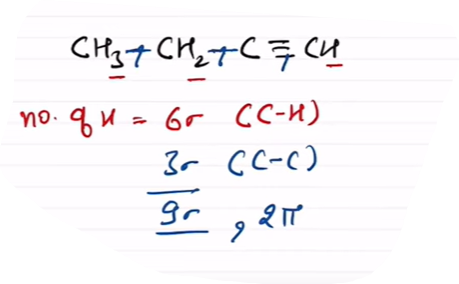 CH₃-CH₂-C≡CH
no. of H = 6σ (C-H)
3σ (C-C)
9σ, 2π